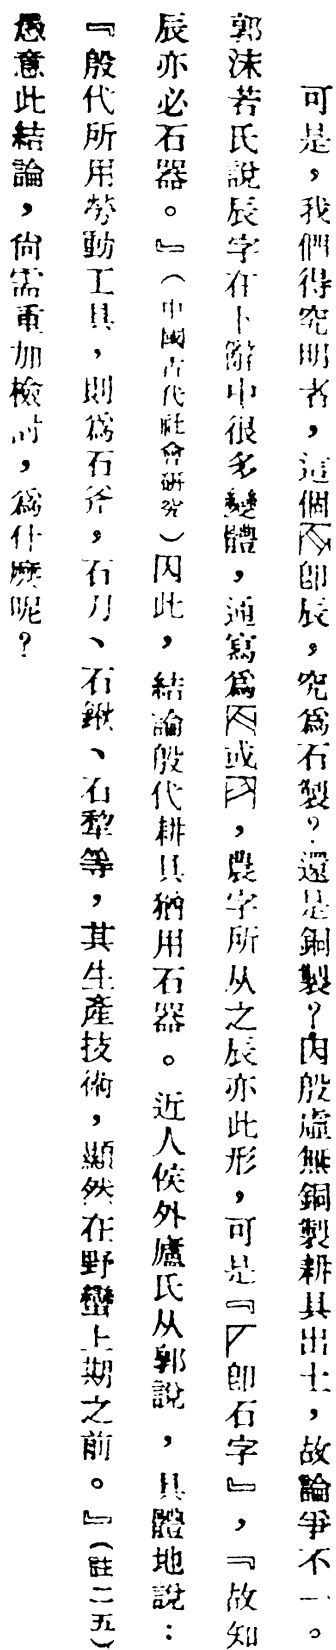 可是，我們得究明者，這個卽辰，究爲石製？還是銅製？因殷虛無銅製耕具出土，故論爭不一。
郭沫若氏說辰字在卜辭中很多變體，通寫爲或，農字所从之辰亦此形，可是『卽石字』，『故知
辰亦必石器。』（中國古代社會硏究）因此，結論殷代耕具猶用石器。近人侯外廬氏从郭說，具體地說：
『殷代所用勞動工具，則爲石斧，石刀、石鍬、石犂等，其生產技術，顯然在野蠻上期之前。』（註二五）
愚意此結論，尙需重加檢討，爲什麽呢？